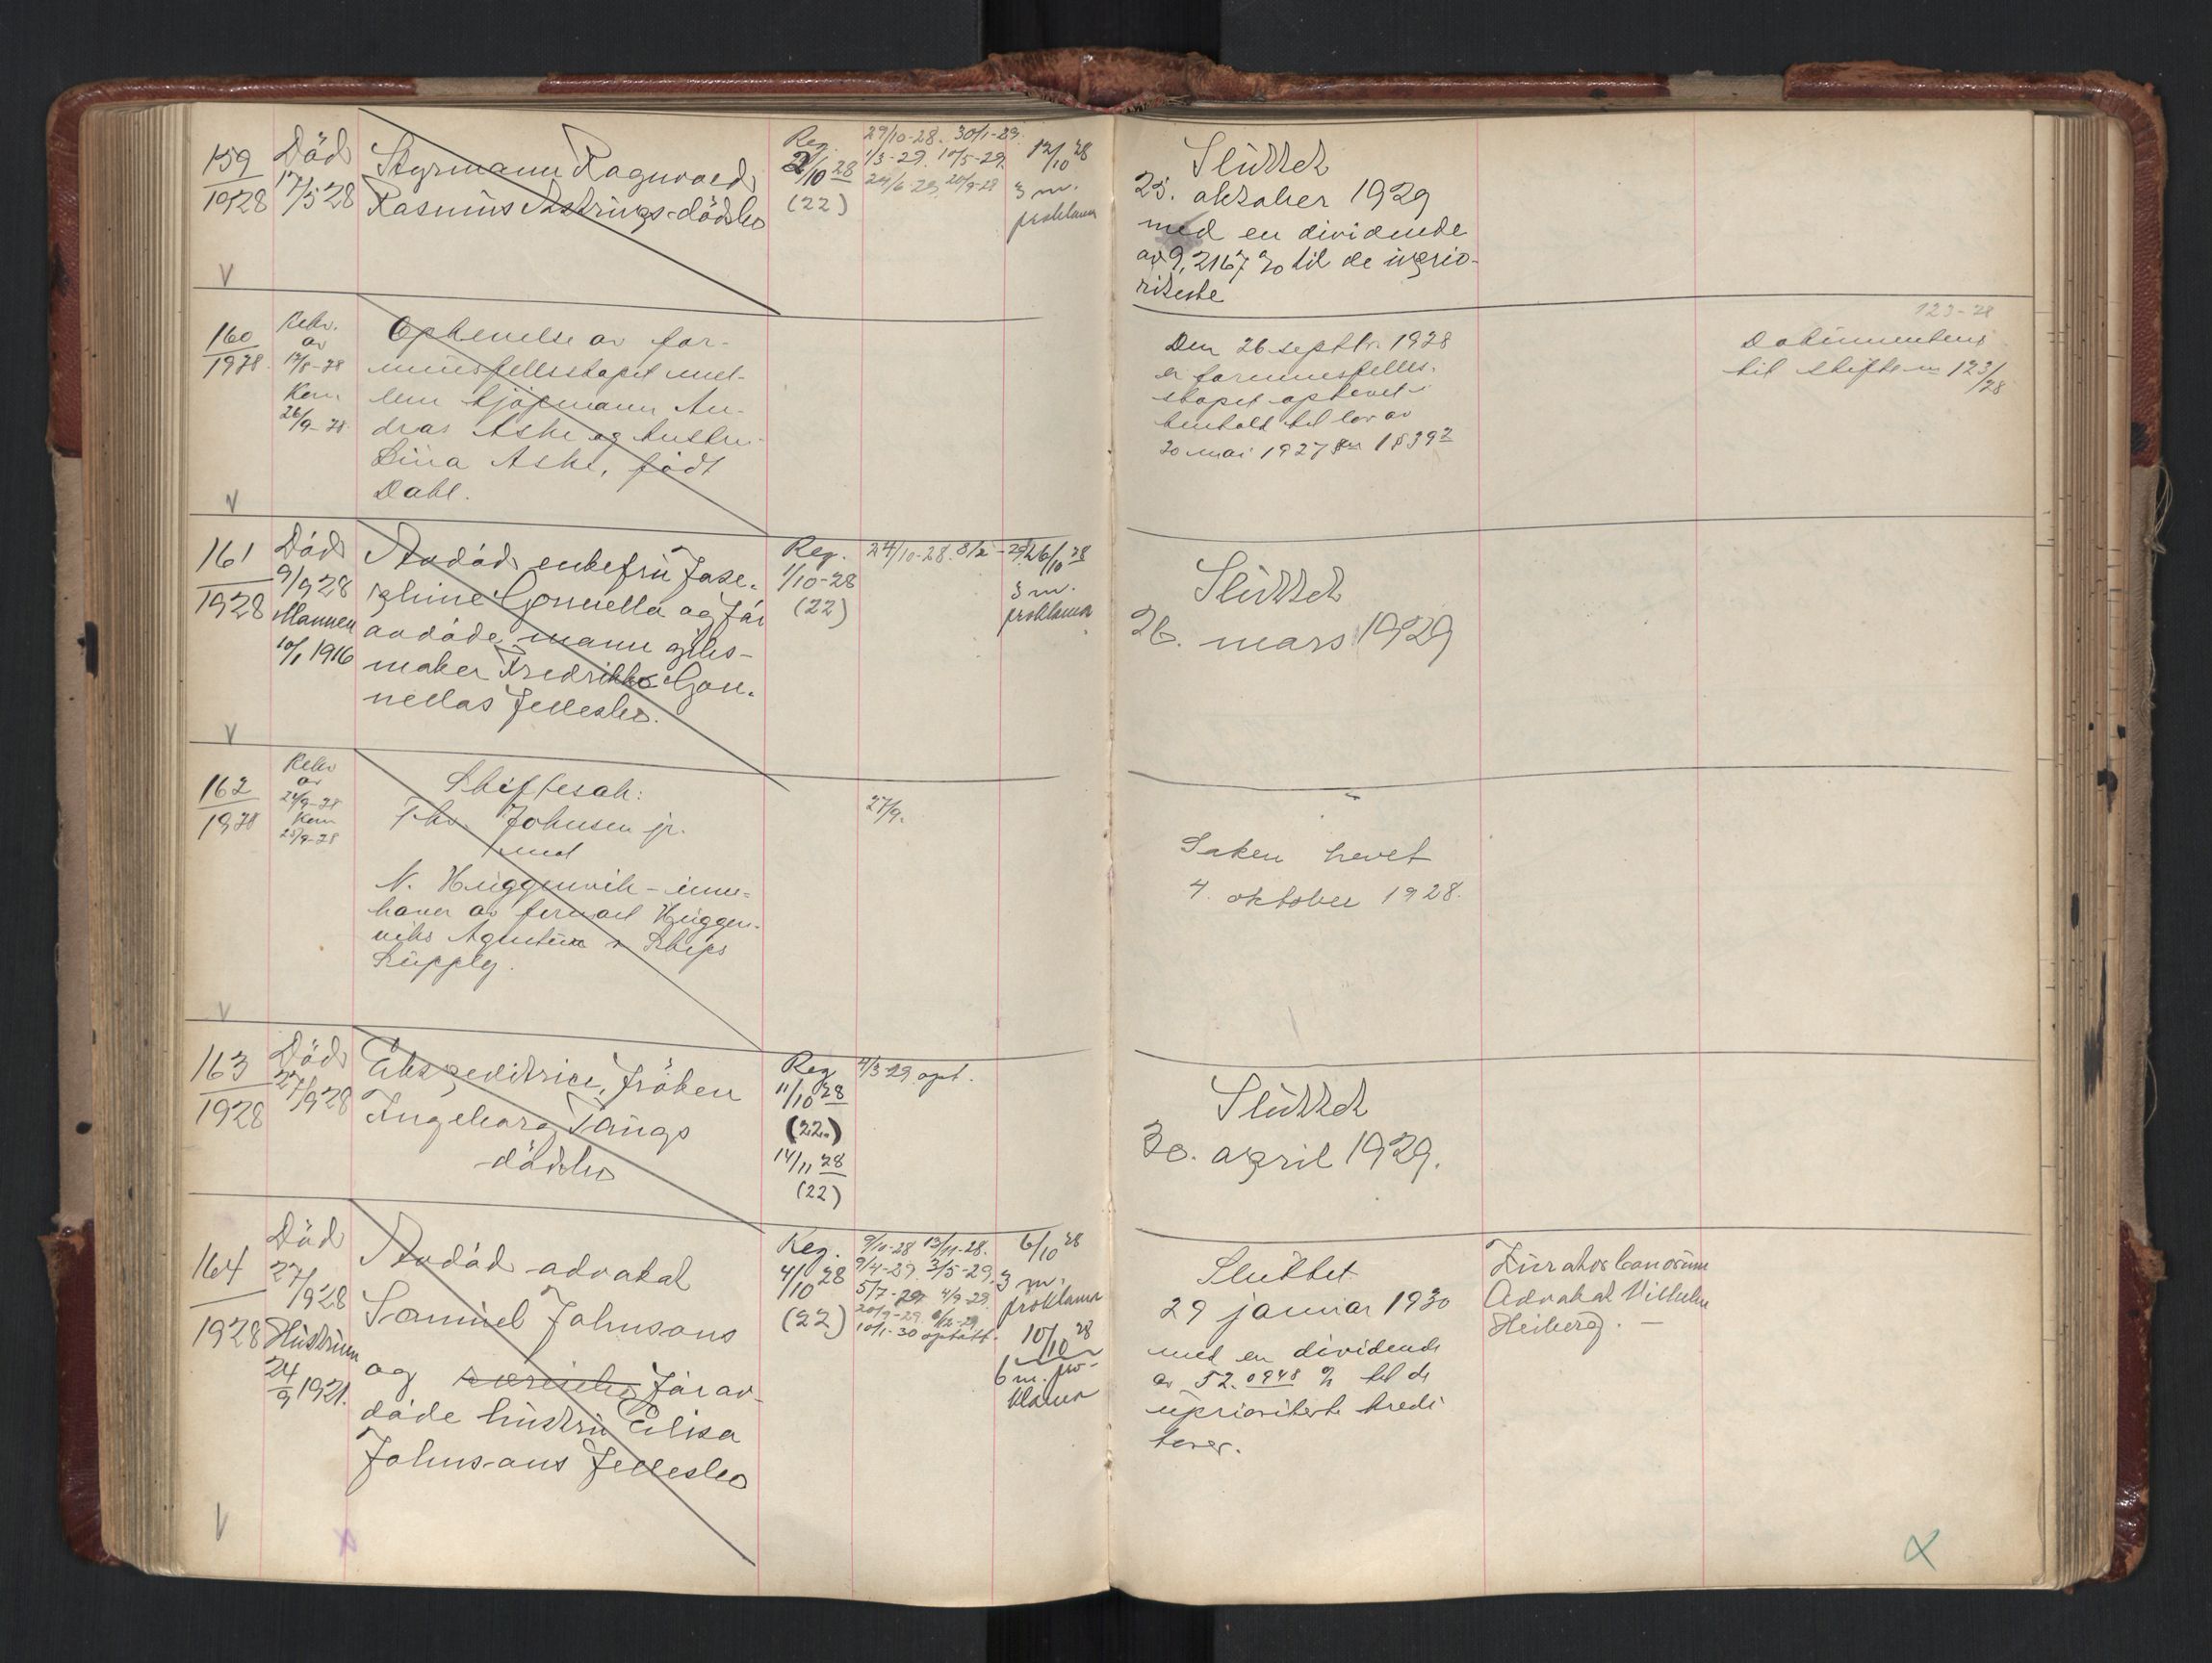 159
1928
Död
17/5 28
Styrmann Ragnvald
Rasmus Astrups dödsbo
Reg.
2/10 28
(22)
29/10-28. 30/1-29.
1/3-29. 10/5-29.
24/6-29 20/9-28
12/10 28
3 m.
proklama
Sluttet
25. oktober 1929
med en dividende
av 9,2167 % til de uprio-
riterte
V
160
1928.
Rekv.
av
17/8-28
Kom
26/9-28
Ophevelse av for-
muesfellesskapet mel-
lem kjöpmann An-
dras Aske og hustru
Lina Aske, född
Dahl.
Den 26 septbr. 1928
er formuesfelles-
skapet ophevet i
henhold til lov av
20 mai 1927 § 39 2
123-28
Dokumentene
til skifte nr 123/28
V
161
1928
Död
9/9 28
Mannen
10/1 1916
Avdöd enkefru Jose-
phine Gonnella og för
avdöde mann gibs-
maker Fredrikko Gon-
nellas fellesbo.
Reg.
1/10-28
(22)
24/10-28. 8/2-29.
26/10 28
3 m.
proklama
Sluttet
26. mars 1929
V
162
1928
Rekv
av
24/9-28
Kom
25/9-28
Skiftesak:
Thv. Johnsen jr.
mot
N. Huggenvik - inne-
haver av firmaet Huggen-
viks Agentur & Skips
Supply.
27/9.
Saken hevet
4. oktober 1928.
V
163
1928
Död
27/9 28
Ekspeditrice, fröken
Ingeborg Tangs
dödsbo
Reg
11/10 28
(22)
14/11 28
(22)
4/3-29 opt.
Sluttet
30. april 1929.
164
1928
Död
27/9 28
Hustruen
24/9 1921.
Avdöd advokat
Samuel Johnsons
og för av-
döde hustru Elisa
Johnsons fellesbo
Reg.
4/10 28
(22)
9/10-28 13/11-28.
9/4-29. 3/5-29.
5/7-29 4/9-29.
20/9-29. 6/12-29
10/1-30 optatt.
6/10 28
3 m.
proklama
10/10 28
6 m. pro-
klama
Sluttet
29 januar 1930
med en dividende
av 52.0948 % til de
uprioriterte kredi
torer.
Kurator bonorum
Advokat Vilhelm
Heiberg. —
V
x
x